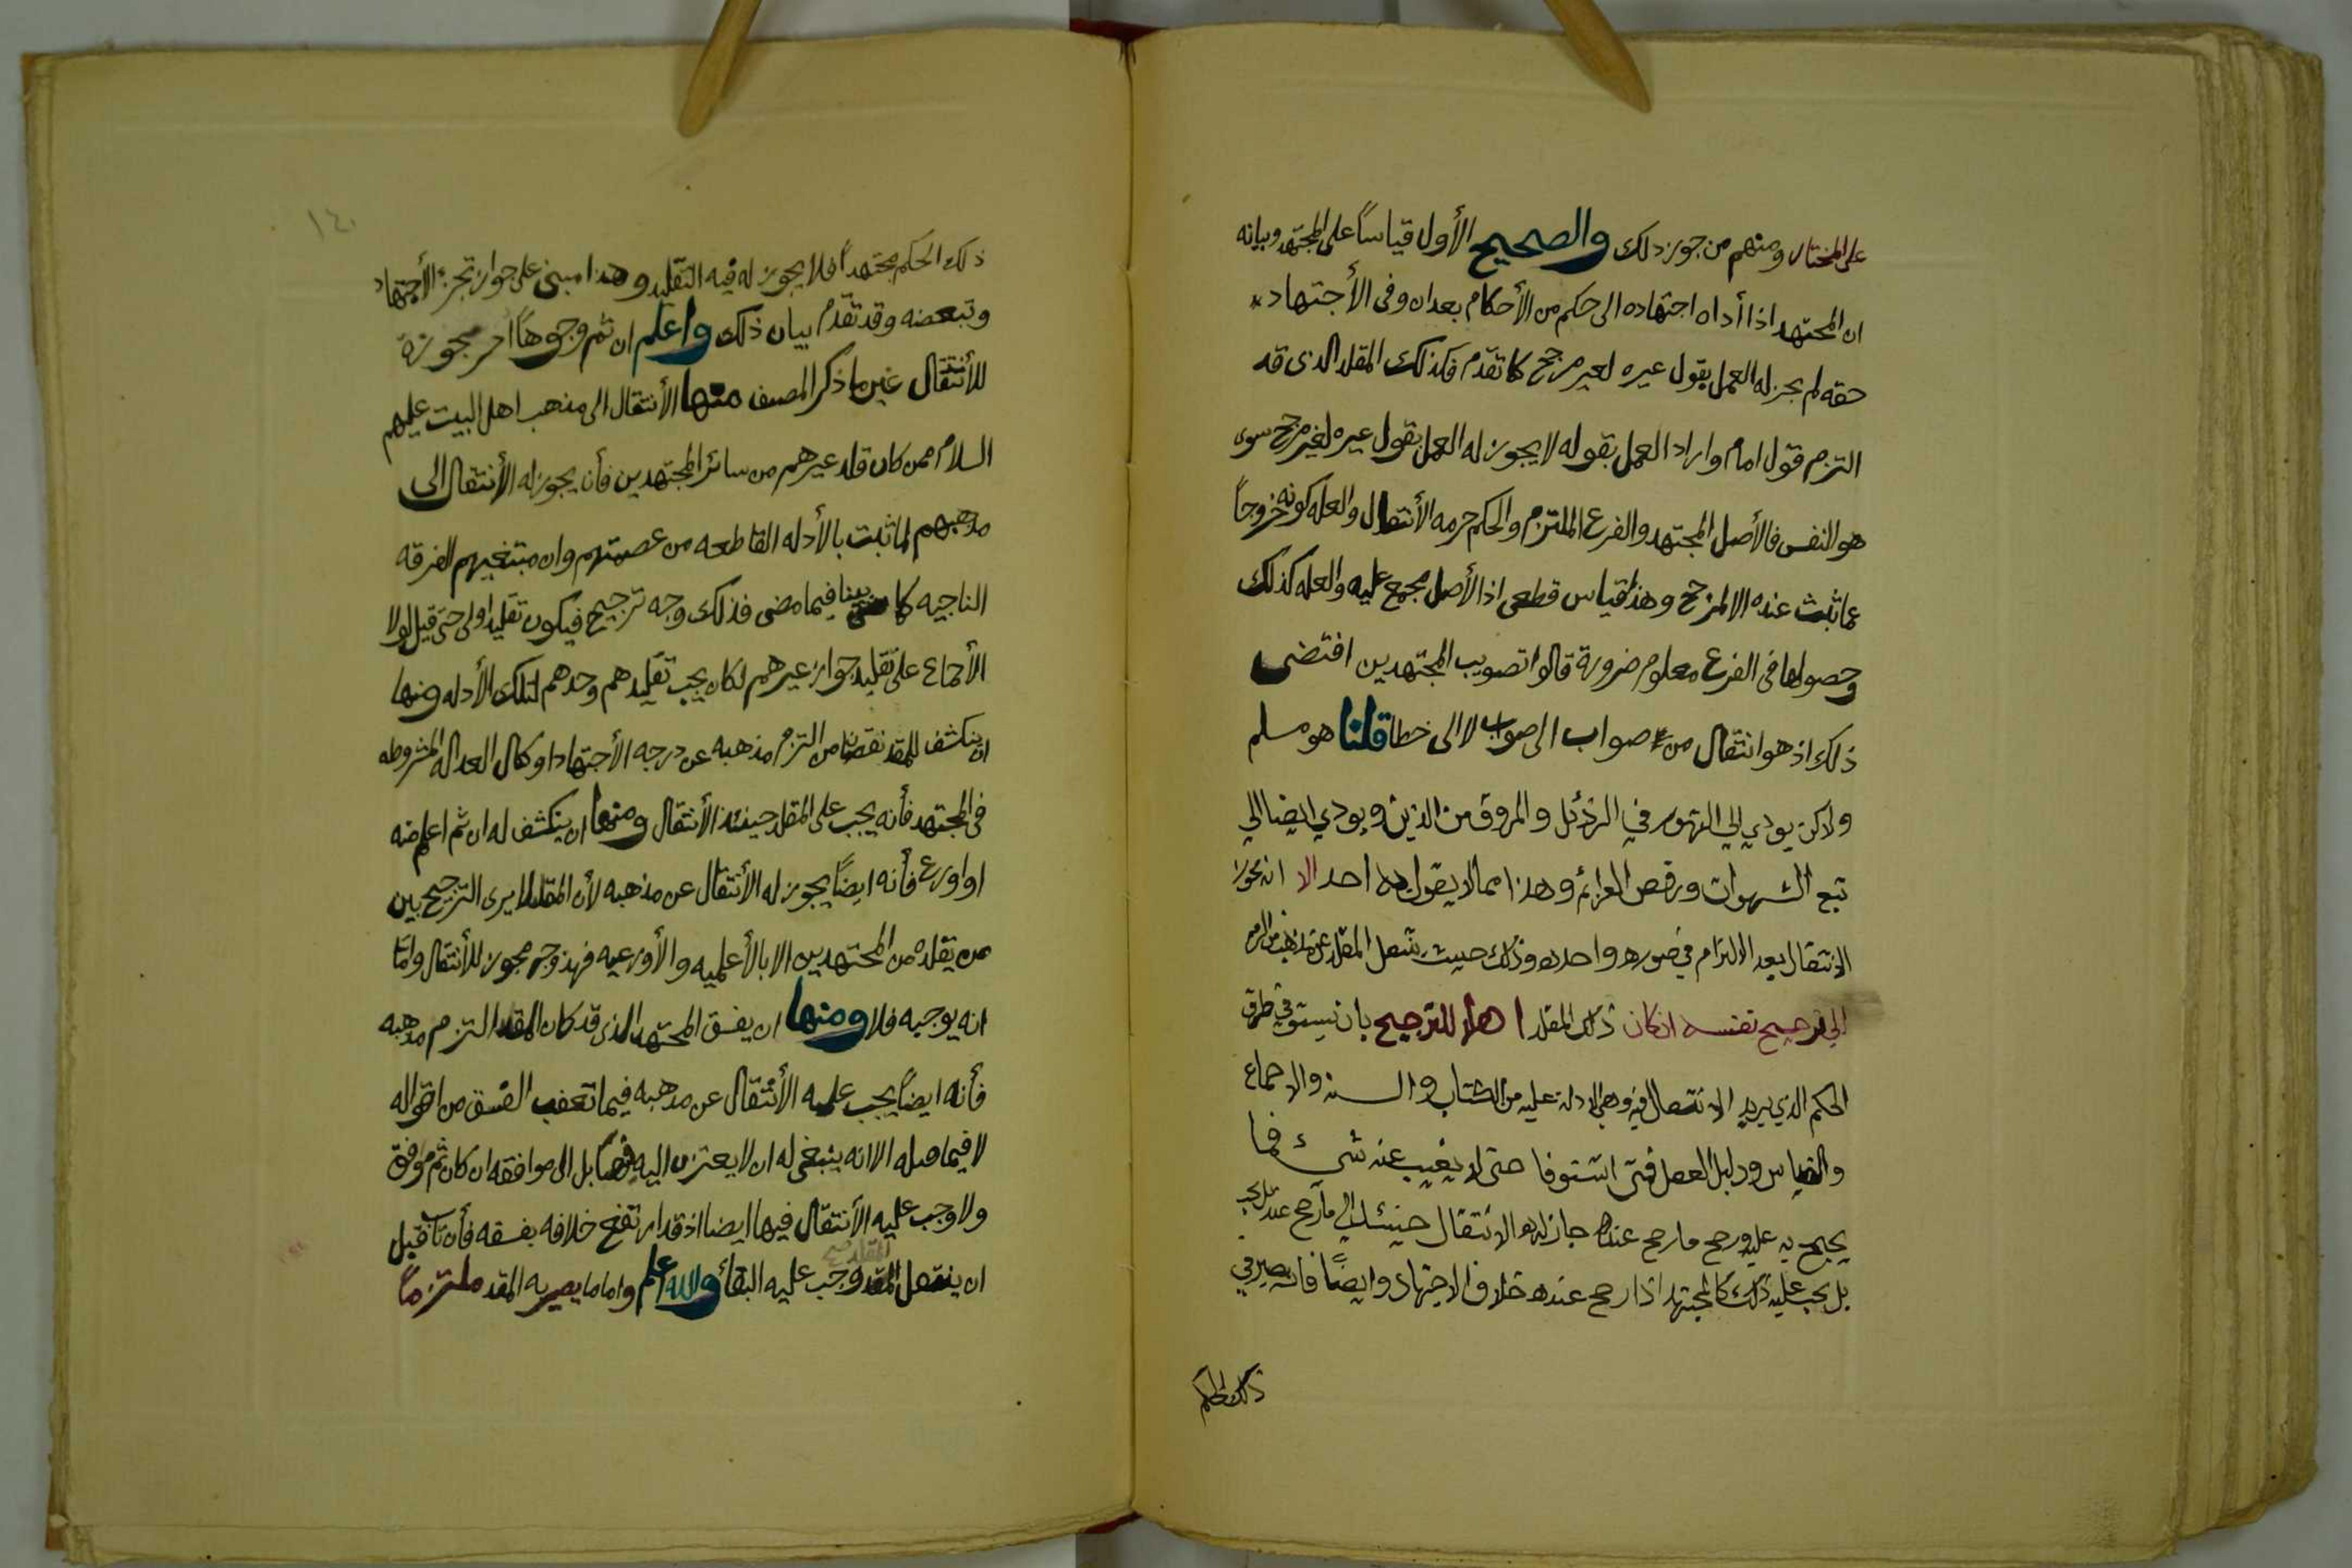 على المختار ومنهم من جوز ذلك والصحيح الأول قياساً على المجتهد وبيانه
ان المجتهد اذا أداه اجتهاده الى حكم من الأحكام بعد ان وفى الأجتهاد
حقه لم يجز له العمل بقول غيره لغير مرجح كما تقدم فكذلك المقلد الذى قد
التزم قول امام واراد العمل بقوله لا يجوز له العمل بقول غيره لغير مرجح سوى
هو النفس فالأصل المجتهد والفرع الملتزم والحكم حرمه الأنتقال والعله كونه خروجاً
عما ثبت عنده الا لمرجح وهذا قياس قطعى اذ الأصل مجمع عليه والعله كذلك
وحصولها فى الفرع معلوم ضرورة قالوا تصويب المجتهدين اقتضى
ذلك اذ هو انتقال من صواب الى صواب لا الى خطا قلنا هو مسلم
ولاكن يودي الى التهور في الرذئل والمروق من الدين ويودي ايضا الى
تبع الشهوات ورفص العزائم وهذا مما لا يقول به احد الا انه يجوز
الانتقال بعد الالتزام في صوره واحده وذلك حيث ينتقل المقلد عن مذهب من التزم
الى ترجيح نفسه ان كان ذلك المقلد اهلا للترجيح بان يستوفي طرق
الحكم الذي يريد الانتقال فيه وهي الادلة عليه من الكتاب والسنه والاجماع
والقياس ودليل العقل فمتى استوفا حتى لا يغيب عنه شيء فما
يحيح به عليه ورجح ما رجح عنده جاز له الانتقال حينئذ الى ما رجح عنده
بل يجب عليه ذلك كالمجتهد اذا رجح عنده خلاف الاجتهاد وايضاً فانه يصير في
ذلك الحكم
١٤٠
ذلك الحكم مجتهداً فلا يجوز له فيه التقليد وهذا مبنى على جواز تجزء الأجتهاد
وتبعضه وقد تقدم بيان ذلك واعلم ان ثم وجوهاً اخر مجوزة
للأنتقال غير ما ذكر المصنف منها الأنتقال الى مذهب اهل البيت عليهم
السلام ممن كان قلد غيرهم من سائر المجتهدين فأنه يجوز له الأنتقال الى
مذهبهم لما ثبت بالأدله القاطعه من عصمتهم وان متبعيهم الفرقه
الناجيه كما بينا فيما مضى فذلك وجه ترجيح فيكون تقليد اولى حتى قيل لولا
الأجماع على تقليد جواز غيرهم لكان يجب تقليدهم وحدهم لتلك الأدله ومنها
ان ينكشف للمقلد نقصان من التزم مذهبه عن درجه الأجتهاد او كمال العداله المشروطه
فى المجتهد فأنه يجب على المقلد حينئذ الأنتقال ومنها ان ينكشف له ان ثم اعلم منه
او اورع فأنه ايضاً يجوز له الأنتقال عن مذهبه لأن المقلد لا يرى الترجيح بين
من يقلده من المجتهدين الا بالأعلميه والأورعيه فهذ وجه مجوز للأنتقال واما
انه يوجبه فلا ومنها ان يفسق المجتهد الذى قد كان المقلد التزم مذهبه
فأنه ايضاً يجب عليه الأنتقال عن مذهبه فيما تعقب الفسق من اقواله
لا فيما قبله الا انه ينبغى له ان لا يعتزى اليه بل الى موافقه ان كان ثم موفق
ولا وجب عليه الأنتقال فيها ايضا اذ قد ارتفع خلافه بفسقه فأن تاب قبل
ان ينتقل المقلد وجب عليه البقاء والله اعلم واما ما يصير به المقلد ملتزماً